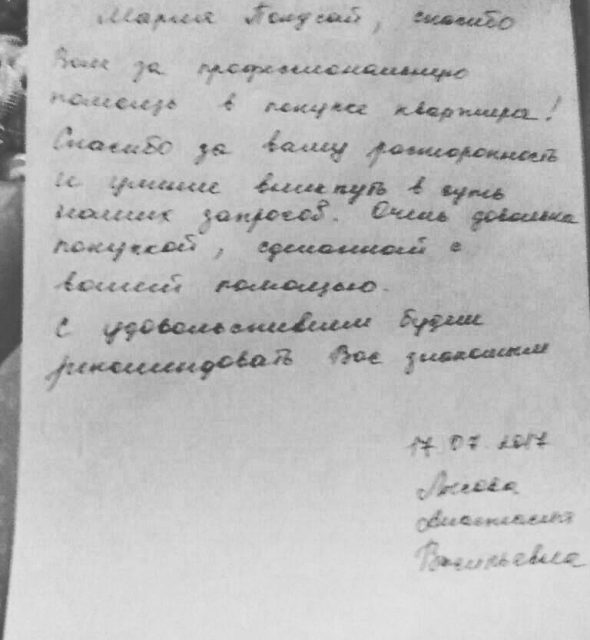 Мария Полусай, спасибо
Вам за профессиональную
помощь в покупке квартира!
Спасибо за вашу расторопность
и умение вникнуть в суть
наших запросов. Очень довольна
покупкой, сделанной с
вашей помощью.
С удовольствием будем
рекомендовать Вас знакомым
17.07.2017
Лысова
Анастасия
Васильевна